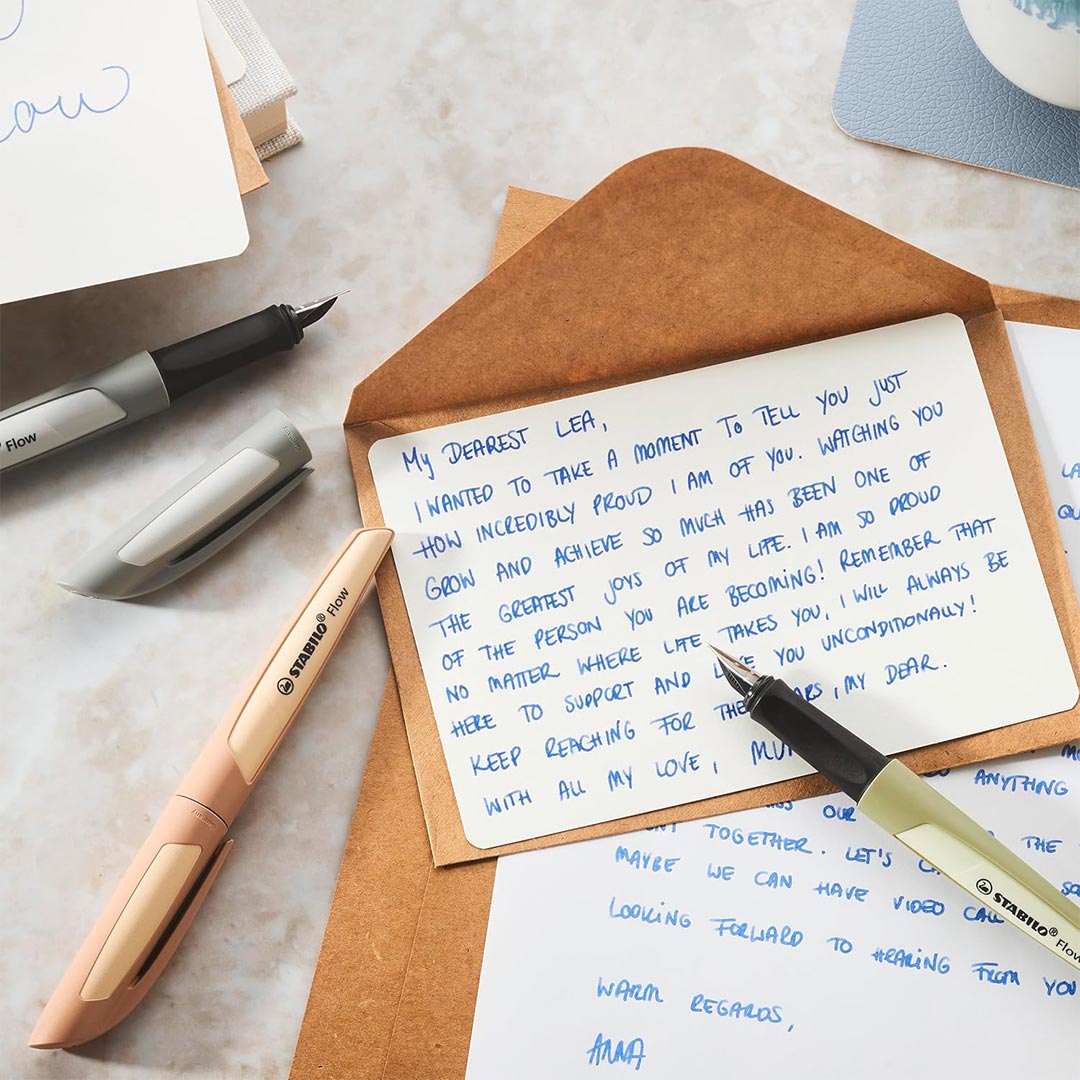 ow
Flow
STABILO® Flow
MY DEAREST LEA,
I WANTED TO TAKE A MOMENT TO TELL YOU JUST
HOW INCREDIBLY PROUD I AM OF YOU. WATCHING YOU
GROW AND ACHIEVE SO MUCH HAS BEEN ONE OF
THE GREATEST JOYS OF MY LIFE. I AM SO PROUD
OF THE PERSON YOU ARE BECOMING! REMEMBER THAT
NO MATTER WHERE LIFE TAKES YOU, I WILL ALWAYS BE
HERE TO SUPPORT AND YOU UNCONDITIONALLY!
KEEP REACHING FOR , MY DEAR.
WITH ALL MY LOVE,
ANYTHING
OUR THE
TOGETHER. LET'S
MAYBE WE CAN HAVE VIDEO CALL
LOOKING FORWARD TO HEARING FROM YOU
WARM REGARDS,
ANNA
STABILO® Flow